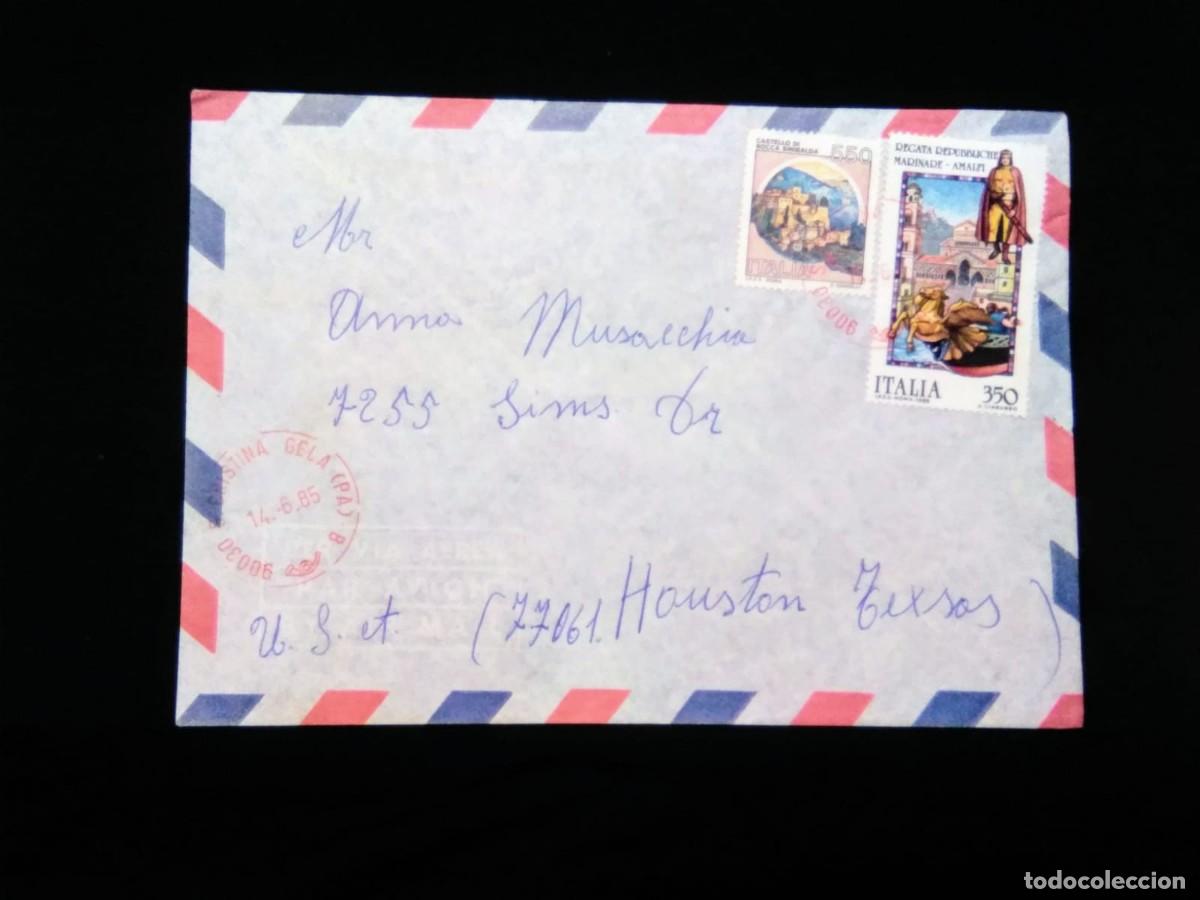 CASTELLO DI
ROCCA SINIBALDA
550
ITALIA
REGATA REPUBBLICHE
MARINARE - AMALFI
ITALIA
350
Mr
Anna Musacchia
7255 Sims Dr
CRISTINA GELA (PA) B
14.-6.85
90030
90030
U.S.A. (77061. Houston Texsas)
todocoleccion